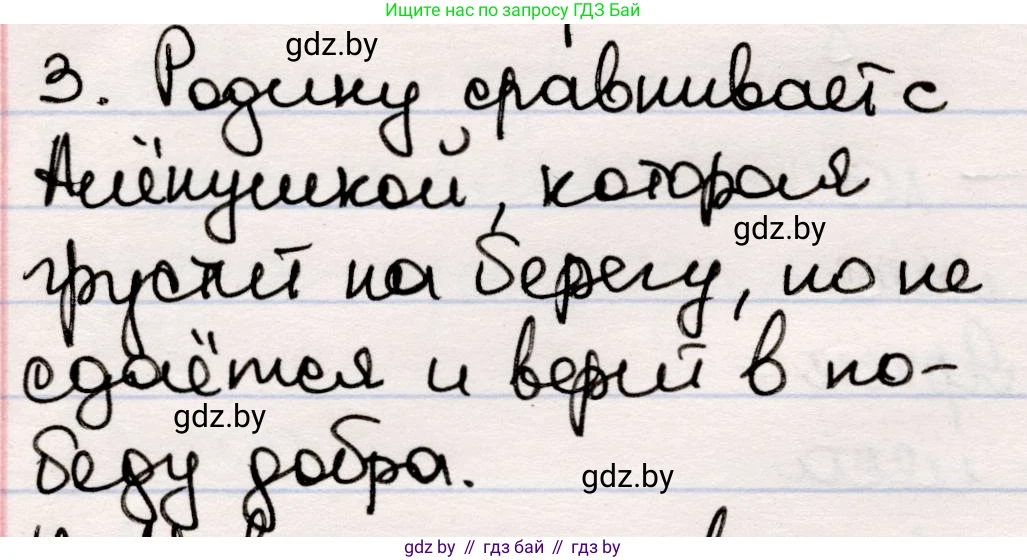 Ищите нас по запросу ГДЗ Бай
gdz.by
3. Родину сравнивает с
Алёнушкой, которая
gdz.by
грустит на берегу, но не
сдаётся и верит в по-
gdz.by
беду добра.
gdz.by
gdz.by // гдз бай // gdz.by